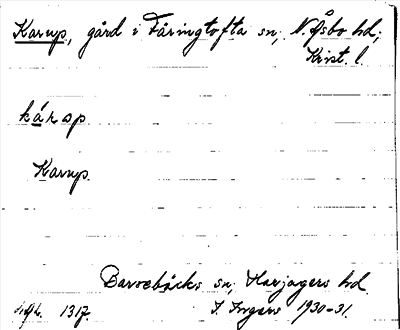 Karup, gård i Färingtofta sn; N. Åsbo hd;
Krist. l.
károp
Karup.
Barsebäcks sn; Harjagers hd.
1317. I. Ingers 1930-31.